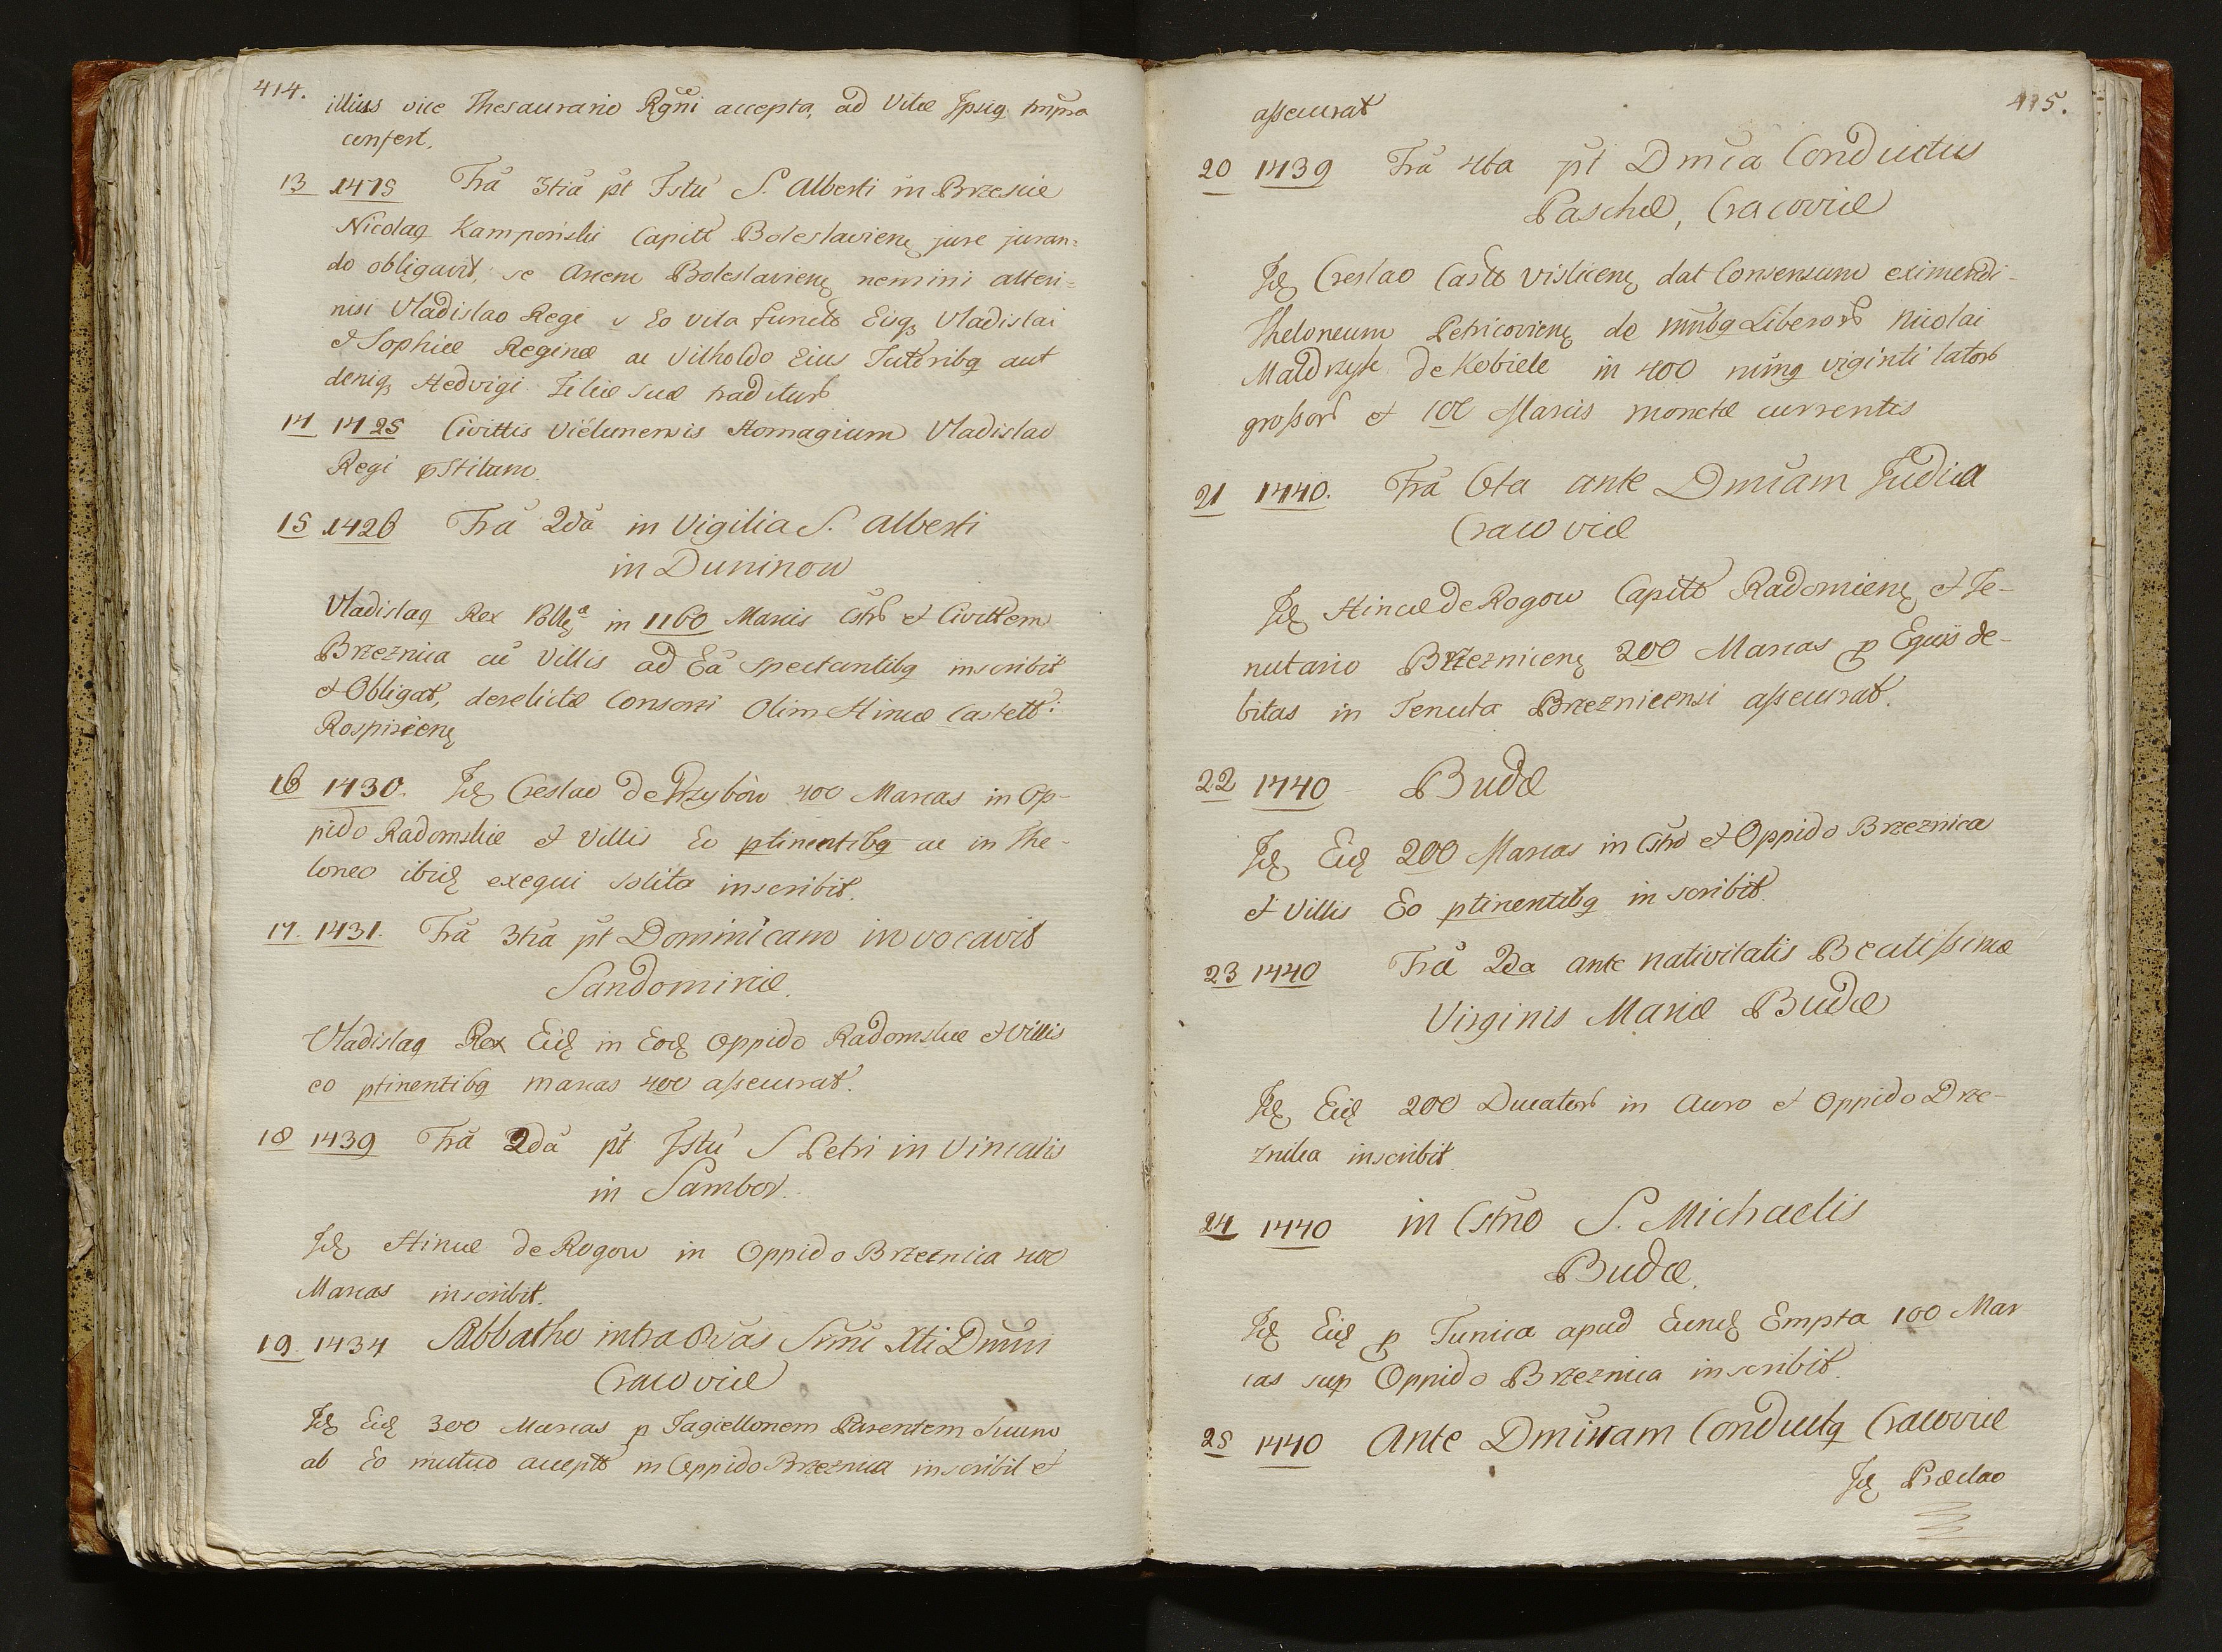 414.
illius vice Thesaurario Rgni accepta, ad Vitæ Ipsiq tmpra
confert.
13 1415 Fra 3tia pt Fstu S. Alberti in Brzescie
Nicolaq Kamponski Capitt Boleslavienę jure juran=
do obligavit, se Arcem Boleslavienę nemini alteri=
nisi Vladislao Regi v Eo vita functo Eisq Vladislai
& Sophiæ Reginæ ac Vitholdo Eius Tutoribq aut
deniq Hedvigi Filiæ suæ traditur
14 1425 Civittis Vielunensis Homagium Vladislao
Regi pstitum.
15 1426 Fra 2da in Vigilia S. Alberti
in Duninow
Vladislaq Rex in 1160 Marcis Cstr & Civittem
Brzeznica cu Villis ad Ea spectantibq inscribit
& Obligat, derelictæ Consorti Olim Hincæ Castell:
Rospirienę
16 1430. Id Creslao de Przybow 400 Marcas in Op-
pido Radomskie & Villis Eo ptinentibq ac in The-
loneo ibid exequi solito inscribit.
17. 1431. Fra 3tia pt Dominicam invocavit
Sandomiriæ.
Vladislaq Rex Eid in Eod Oppido Radomskie & Villis
eo ptinentibq marcas 400 asseurat.
18 1439 Fra 2da pt Fstu S Petri in Vinculis
in Sambor.
Id Hincæ de Rogow in Oppido Brzeznica 400
Marcas inscribit.
19. 1434 Sabbatho intra Ovas Smi Xti Dmni
Cracoviæ
Id Eid 300 Marcas p Jagiellonem Parentem Suum
ab Eo mutuo accepto in Oppido Brzeznica inscribit &
415.
asseurat
20 1439 Fra 4ta pt Dmca Conductus
Paschæ, Cracoviæ
Id Creslao Castt Vislicienę dat Consensum eximendi-
Theloneum Petricovienę de mnbq Liberor Nicolai
Maldrzyk de Kobiele in 400 numq viginti lator
grossor & 100 Marcis monetæ currentis
21 1440. Fra 6ta ante Dmcam Judica
Cracoviæ
Id Hincæ de Rogow Capitt Radomienę & Te-
nutario Brzeznicenę 200 Marcas p Equis de-
bitas in Tenuta Brzeznicensi asseurat.
22 1440 Budæ
Id Eid 200 Marcas in Cstro & Oppido Brzeznica
& Villis Eo ptinentibq inscribit.
23 1440 Fra 2da ante nativitatis Beatissimæ
Virginis Mariæ Budæ
Id Eid 200 Ducator in Auro & Oppido Brze-
znica inscribit.
24 1440 in Cstno S. Michaelis
Budæ.
Id Eid p Tunica apud Eund Empta 100 Mar
cas sup Oppido Brzeznica inscribit.
25 1440 Ante Dminam Conductq Cracoviæ
Id Prædlao